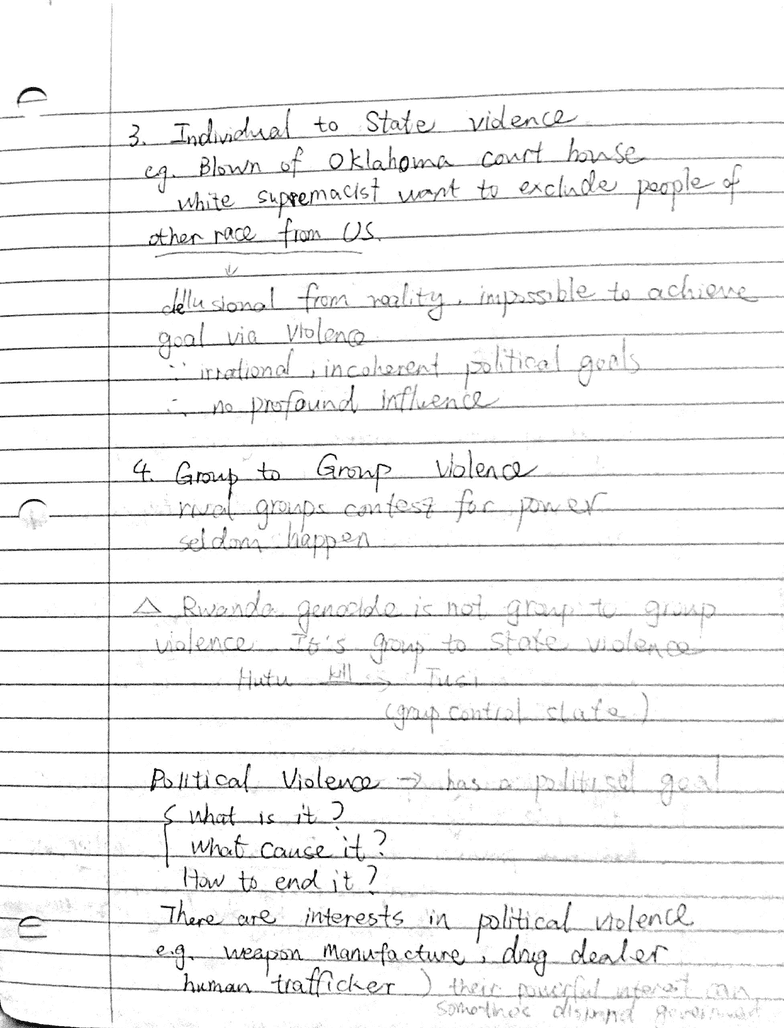 3. Individual to State violence
eg. Blown of Oklahoma court house
white supremacist want to exclude people of
other race from US.
dellusional from reality, impossible to achieve
goal via violence
∵ irrational, incoherent political goals
∴ no profound influence
4. Group to Group violence
rival groups contest for power
seldom happen
△ Rwanda genocide is not group to group
violence It's group to state violence
Hutu kill → Tusi
(group control state)
Political Violence → has a political goal
{ what is it?
what cause it?
How to end it?
There are interests in political violence
e.g. weapon manufacture, drug dealer
human trafficker ) their powerful interest can
government